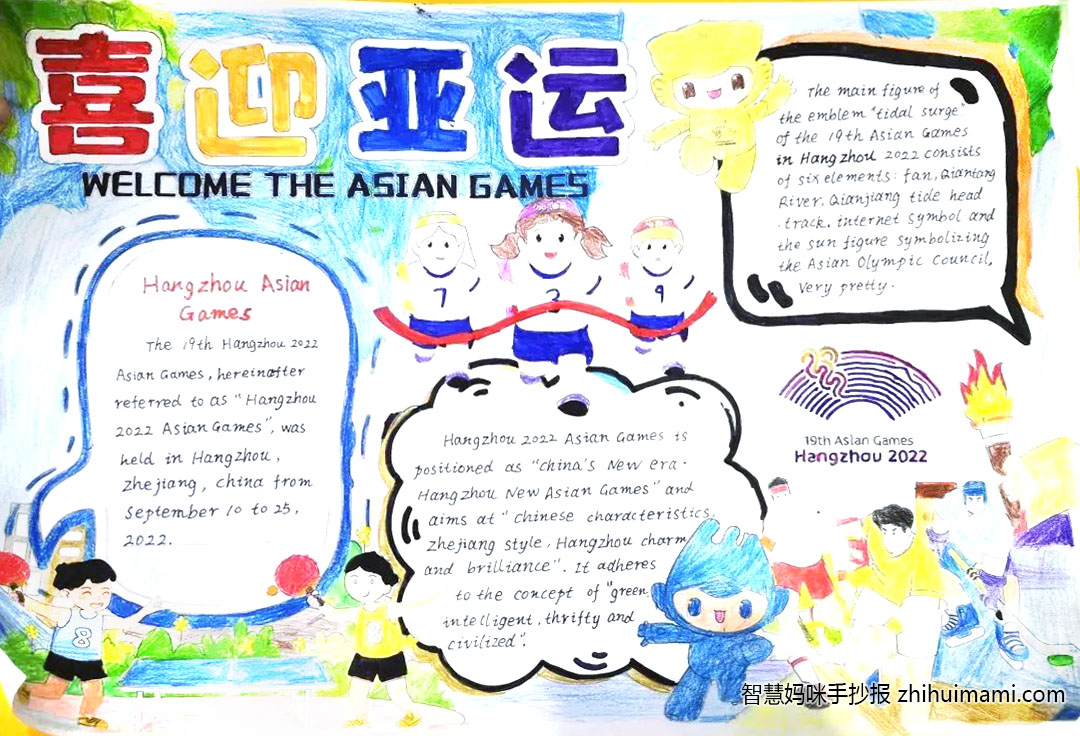 喜迎亚运
WELCOME THE ASIAN GAMES
Hangzhou Asian
Games
The 19th Hangzhou 2022
Asian Games, hereinafter
referred to as "Hangzhou
2022 Asian Games", was
held in Hangzhou,
zhejiang, china from
September 10 to 25,
2022.
The main figure of
the emblem "tidal surge"
of the 19th Asian Games
in Hangzhou 2022 consists
of six elements: fan, Qiantang
River, Qianjiang tide head
track, internet symbol and
the sun figure symbolizing
the Asian Olympic Council,
Very pretty.
7
2
9
Hangzhou 2022 Asian Games is
positioned as "china's New era.
Hangzhou New Asian Games" and
aims at "Chinese characteristics,
zhejiang style, Hangzhou charm
and brilliance". It adheres
to the concept of "green,
intelligent, thrifty and
civilized".
19th Asian Games
Hangzhou 2022
8
8
智慧妈咪手抄报 zhihuimami.com